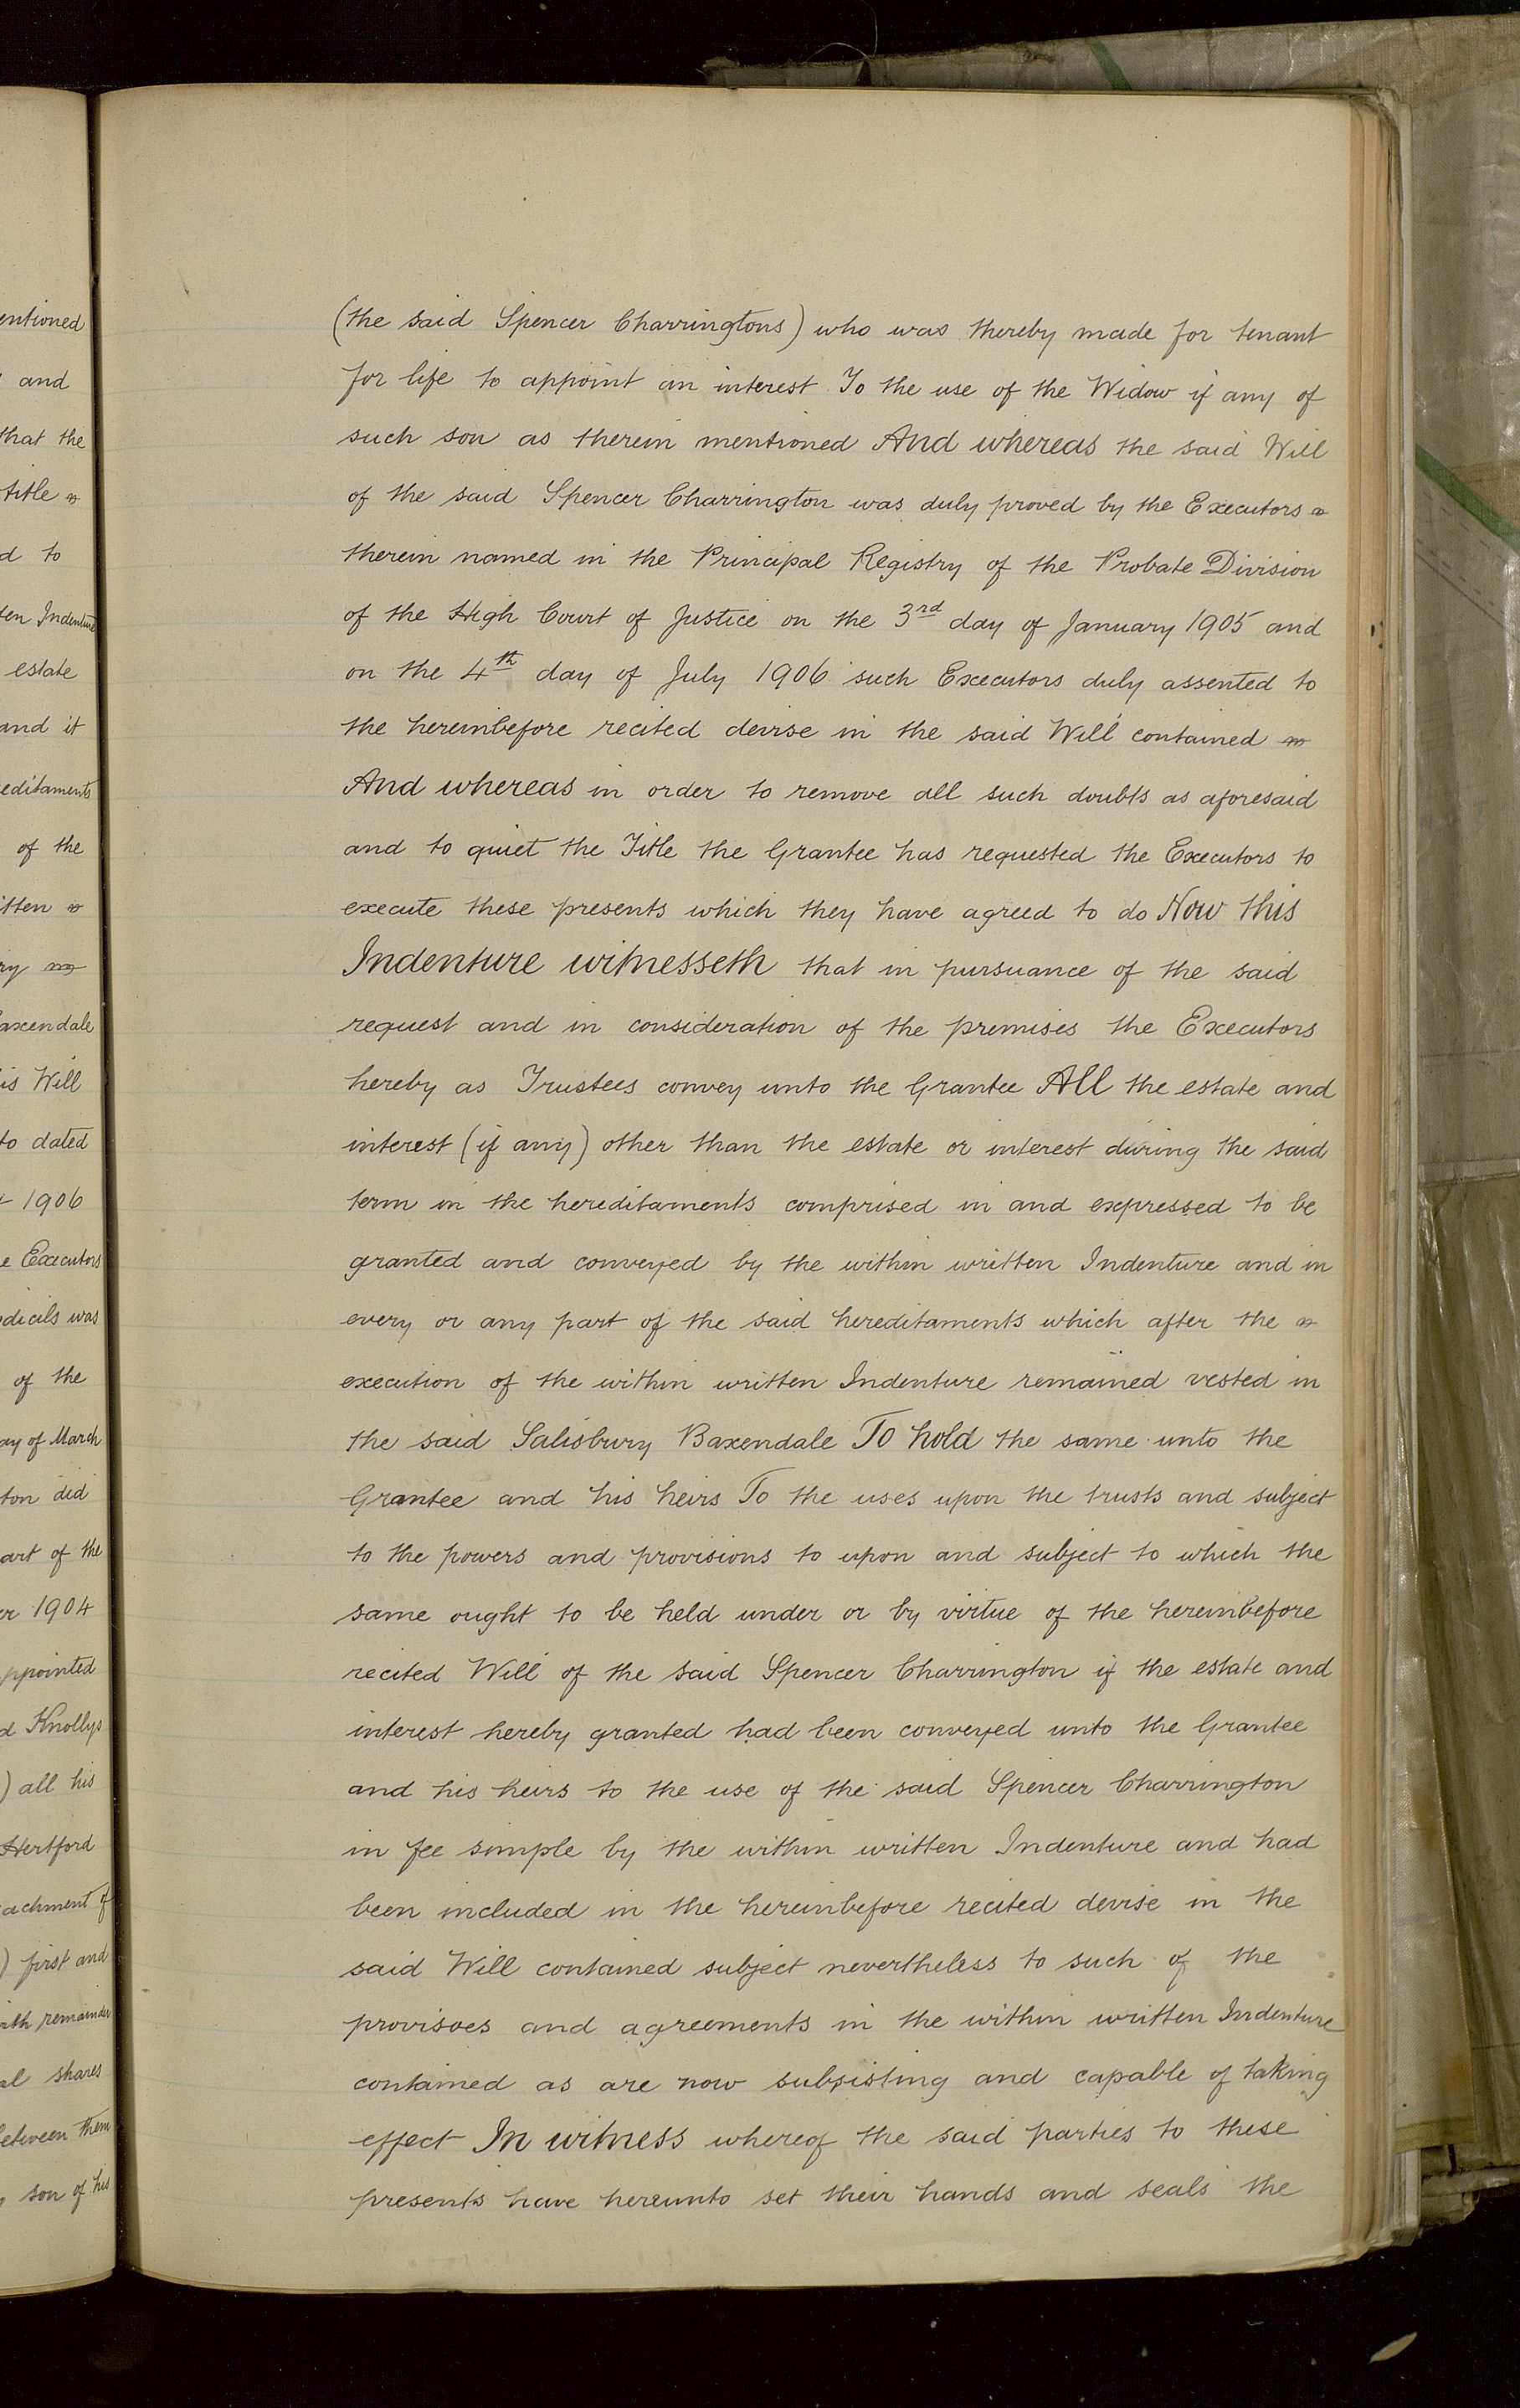 entioned
and
that the
title
d to
ten Indenture
estate
and it
editaments
of the
itten
ry
axendale
is Will
to dated
1906
e Executors
dicils was
of the
ay of March
ton did
art of the
er 1904
ppointed
d Knollys
) all his
Hertford
achment of
) first and
ith remainder
al shares
between them
son of his
(the said Spencer Charringtons) who was thereby made for tenant
for life to appoint an interest To the use of the Widow if any of
such son as therein mentioned And whereas the said Will
of the said Spencer Charrington was duly proved by the Executors
therein named in the Principal Registry of the Probate Division
of the High Court of Justice on the 3rd day of January 1905 and
on the 4th day of July 1906 such Executors duly assented to
the hereinbefore recited devise in the said Will contained
And whereas in order to remove all such doubts as aforesaid
and to quiet the Title the Grantee has requested the Executors to
execute these presents which they have agreed to do Now this
Indenture witnesseth that in pursuance of the said
request and in consideration of the premises the Executors
hereby as Trustees convey unto the Grantee All the estate and
interest (if any) other than the estate or interest during the said
term in the hereditaments comprised in and expressed to be
granted and conveyed by the within written Indenture and in
every or any part of the said hereditaments which after the
execution of the within written Indenture remained vested in
the said Salisbury Baxendale To hold the same unto the
Grantee and his heirs To the uses upon the trusts and subject
to the powers and provisions to upon and subject to which the
same ought to be held under or by virtue of the hereinbefore
recited Will of the said Spencer Charrington if the estate and
interest hereby granted had been conveyed unto the Grantee
and his heirs to the use of the said Spencer Charrington
in fee simple by the within written Indenture and had
been included in the hereinbefore recited devise in the
said Will contained subject nevertheless to such of the
provisoes and agreements in the within written Indenture
contained as are now subsisting and capable of taking
effect In witness whereof the said parties to these
presents have hereunto set their hands and seals the